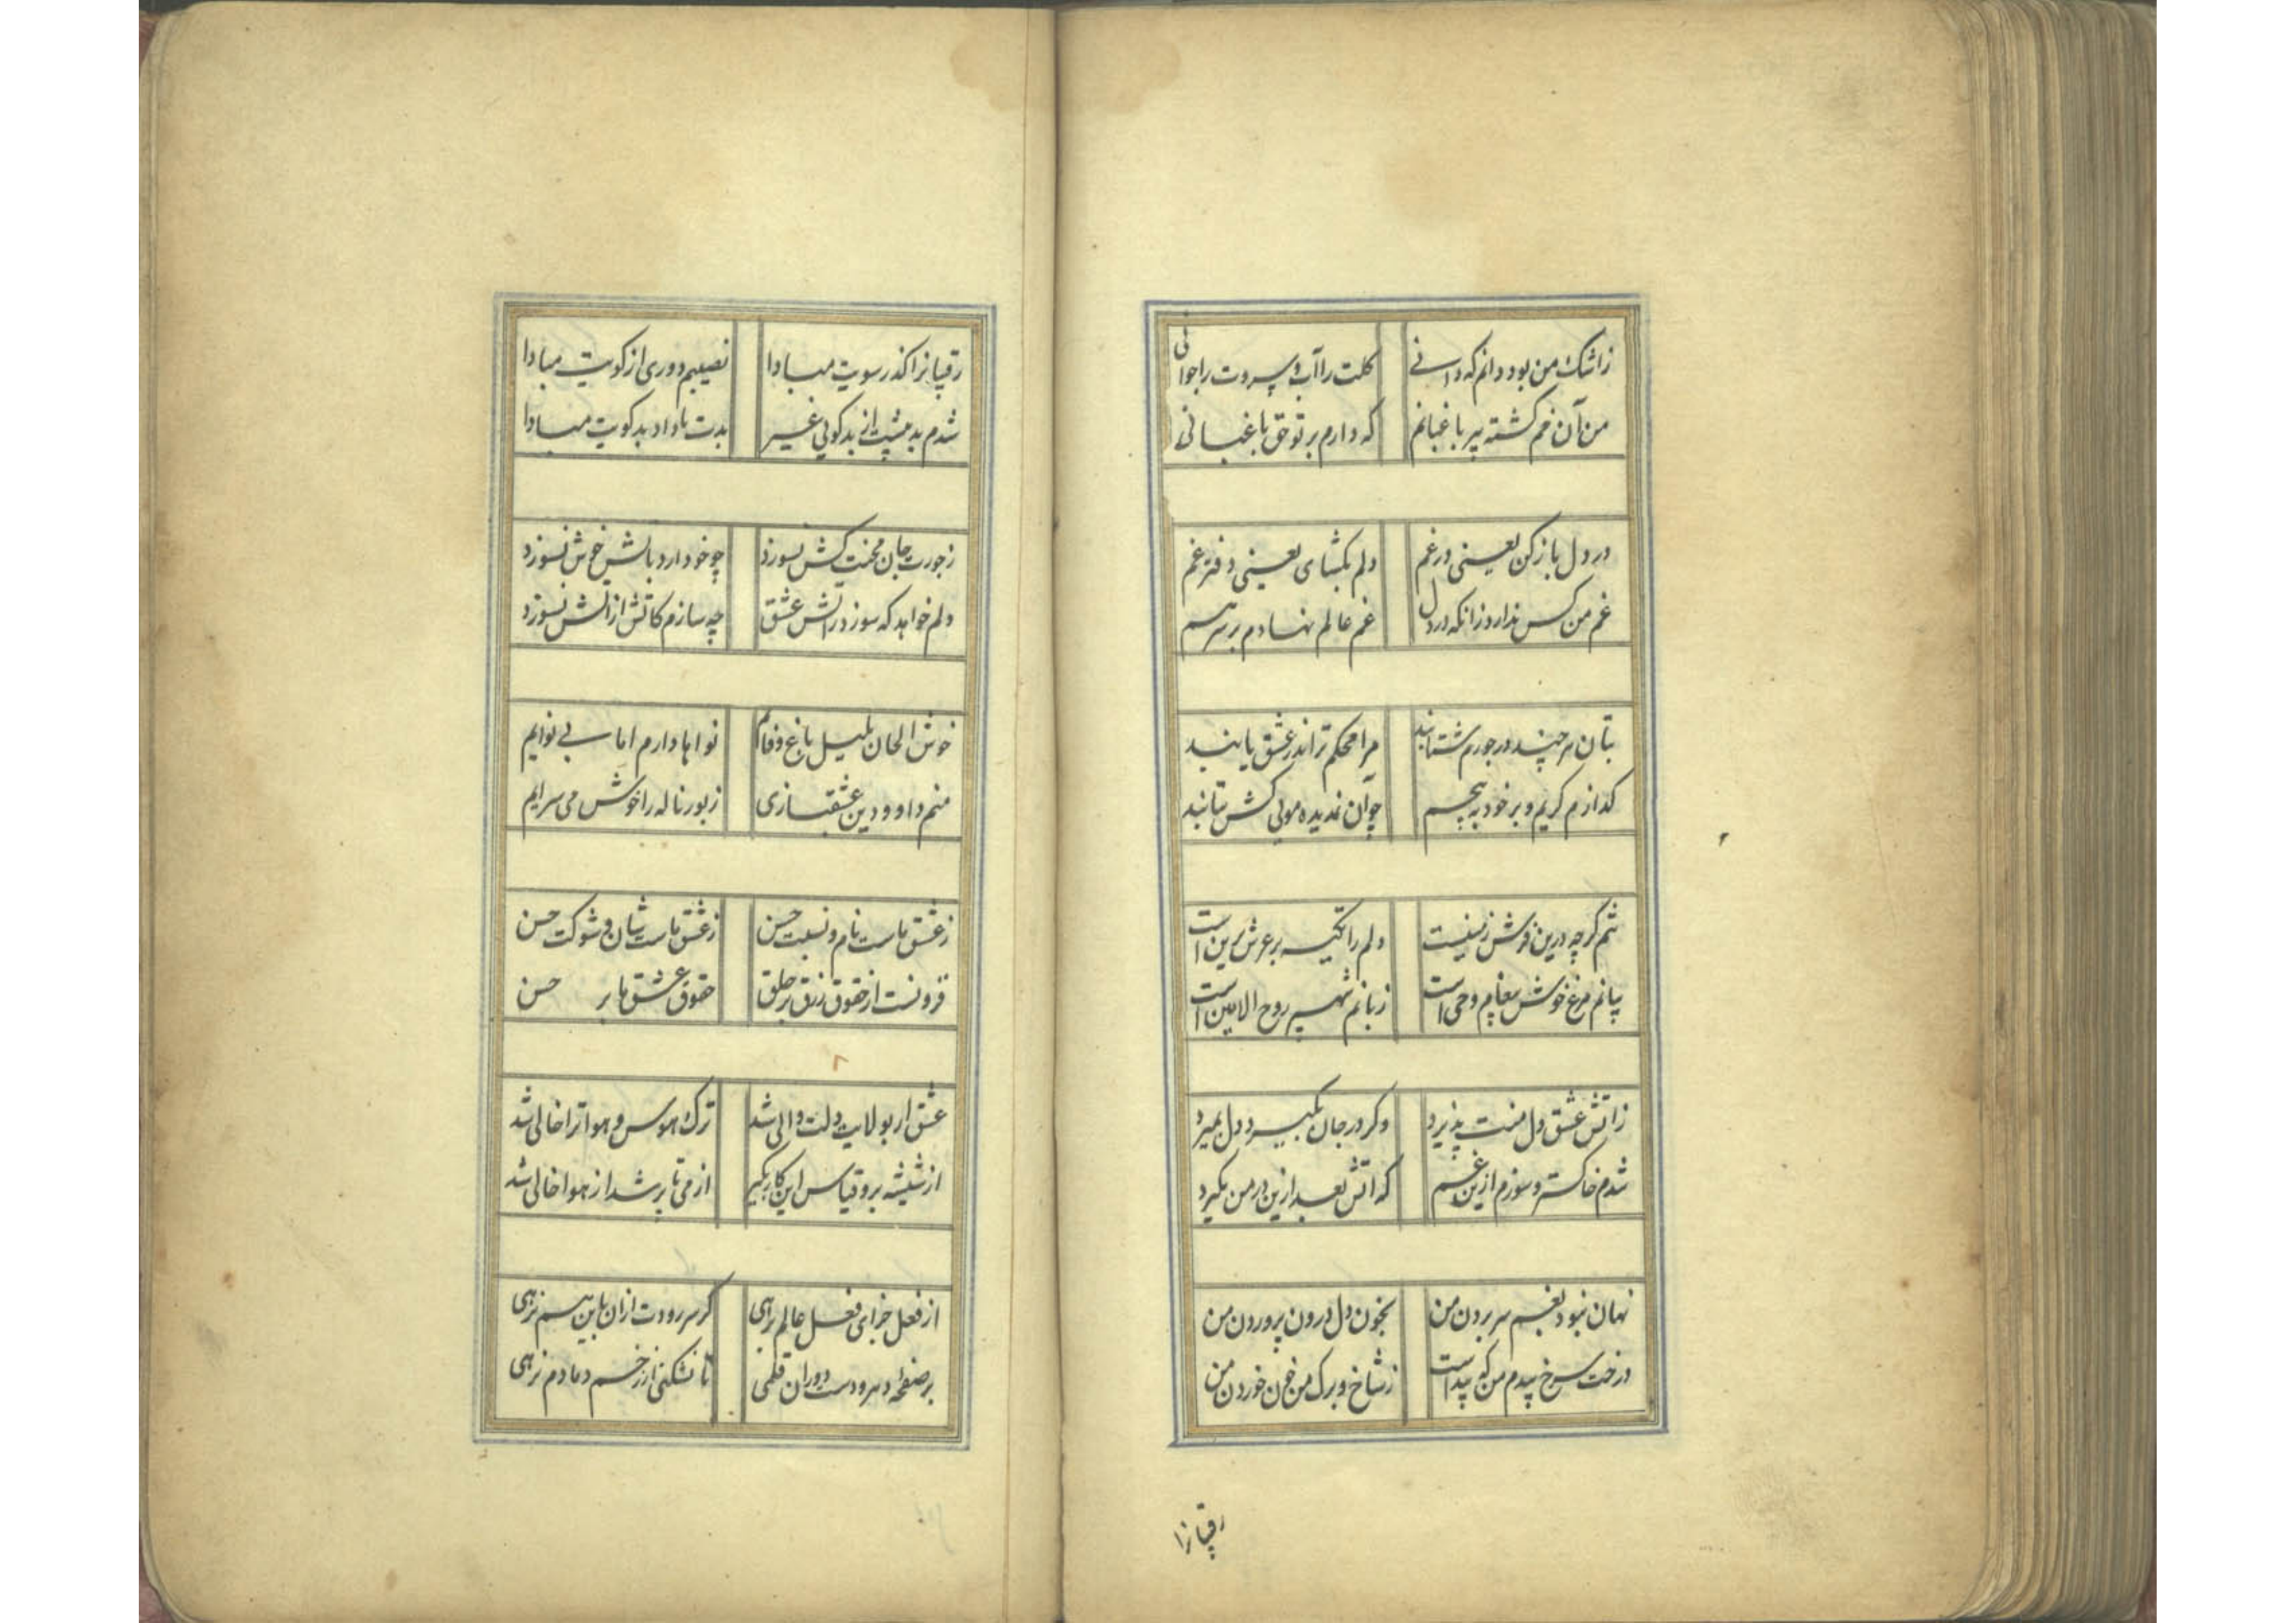 زاشک من بود دانم که دانی گلت را آب و سروت را جوانی
من آن خم گشته پیر باغبانم که دارم بر تو حق باغبانی
در دل باز کن یعنی در غم دلم بگشای یعنی دفتر غم
غم من کس ندارد زانکه در دل غم عالم نهادم بر سر هم
بتان هر چند در جورم شتابند مرا محکم تر اندر عشق یابند
گدازم گریم و بر خود بپیچم چو آن ندیده مویی کش بتابند
تنم گرچه درین فرش زمینست دلم را تکیه بر عرش برین است
بیانم مرغ خوش پیغام وحی است زبانم شهپر روح الامین است
زاتش عشق دل منت پذیرد وگر در جان نگیرد دل بمیرد
شدم خاکستر و سوزم ازین غم که اتش بعد ازین در من نگیرد
نهان نبود بغم سر بردن من بخون دل درون پروردن من
درخت سرخ بیدم من که پیداست زشاخ و برگ من خون خوردن من
رقیبانرا
رقیبانرا گذر سویت مبادا نصیبم دوری از کویت مبادا
شدم بد پیشت از بدگویی غیر بدت باد او بدگویت مبادا
زجورت جان محنت کش نسوزد چو خو دارد باتش خوش نسوزد
دلم خواهد که سوزد زاتش عشق چه سازم کاتش از اتش نسوزد
خوش الحان بلبل باغ وفایم نواها دارم اما بی نوایم
منم داوود دین عشقبازی زبور ناله را خوش می سرایم
زعشق ماست نام و نسبت حسن زعشق ماست شان و شوکت حسن
فزونست از حقوق رزق بر خلق حقوق عشق ما بر حسن
عشق ار بولایت دلت والی شد ترک هوس و هوا ترا خالی شد
از شیشه برو قیاس این کار بگیر از می تا پر شد از هوا خالی شد
از فعل خرابی فعل عالم نرهی گر سر رودت ازان باین هم نرهی
بر صفحه دهر و دست دوران قلمی تا نشکنی از زخم دمادم نرهی